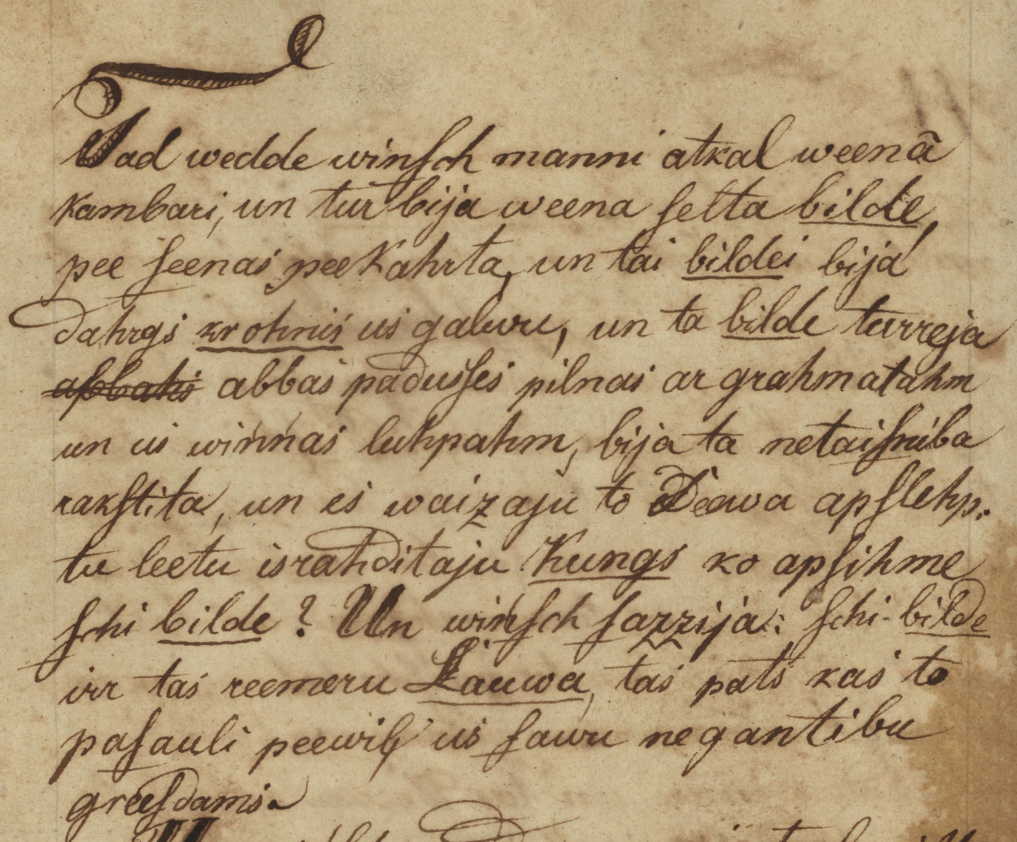 Tad wedde winſch manni atkal weenā
kambari, un tur bija weena ſelta bilde,
pee ſeenas peekahrta, un tai bildei bija
dahrgs krohnis us galwu, un ta bilde turreja
abbahs abbas paduſſes pilnas ar grahmatahm
un us winńas luhpahm, bija ta netaiſniba
rakſtita, un es waizaju to Deewa apſlehp-
tu leetu israhditaju Kungs ko apſihme
ſchi bilde? Un winſch ſazzija: ſchi bilde
irr tas reemeru Lauwa, tas pats kas to
paſauli peewiļ us ſawu negantibu
greeſdams.